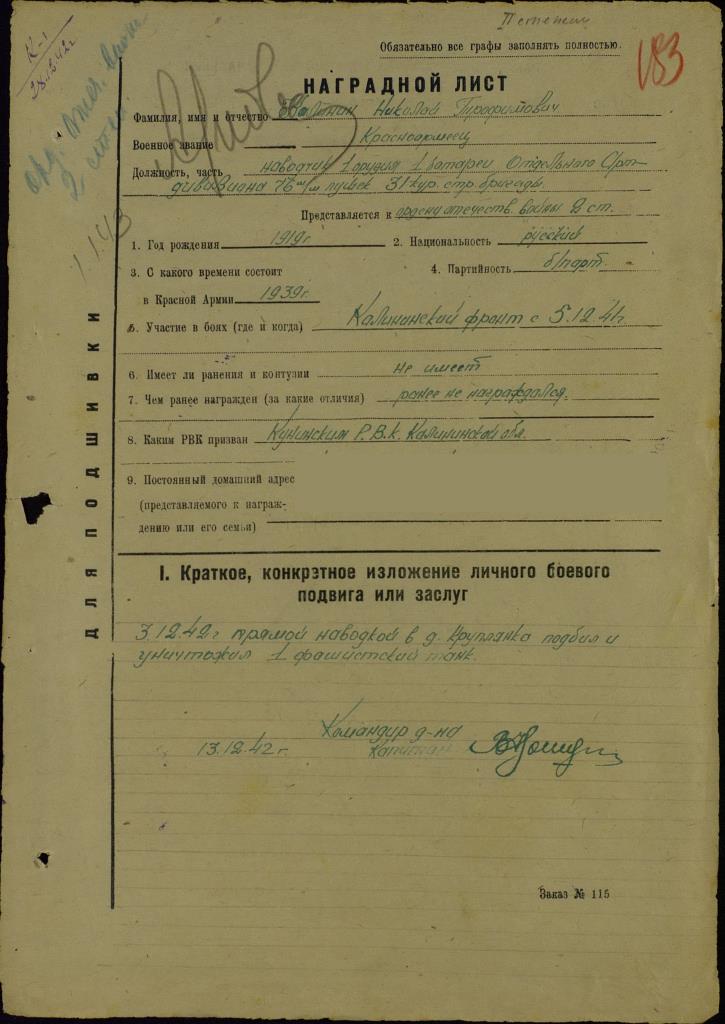 II степени
К-1
28.12.42г
Орд. Отеч. Войны
2 степ.
1.1.43
183
Обязательно все графы заполнять полностью.
НАГРАДНОЙ ЛИСТ
Фамилия, имя и отчество Николай Трофимович
Военное звание Красноармеец
Должность, часть наводчик 1 орудия 1 батареи Отдельного Арт-
дивизиона 76 м/м пушек 31 кур. стр. бригады.
Представляется к ордену отечеств. войны 2 ст.
1. Год рождения 1919г 2. Национальность русский
3. С какого времени состоит
в Красной Армии 1939г.
4. Партийность б/парт.
5. Участие в боях (где и когда) Калининский фронт с 5.12.41г
6. Имеет ли ранения и контузии не имеет
7. Чем ранее награжден (за какие отличия) ранее не награждался.
8. Каким РВК призван Кунинским Р.В.К. Калининской обл.
9. Постоянный домашний адрес
(представляемого к награж-
дению или его семьи)
I. Краткое, конкретное изложение личного боевого
подвига или заслуг
3.12.42г прямой наводкой в д. Круплянка подбил и
уничтожил 1 фашистский танк.
Командир д-на
13.12.42г. Капитан
Заказ № 115
ДЛЯ ПОДШИВКИ